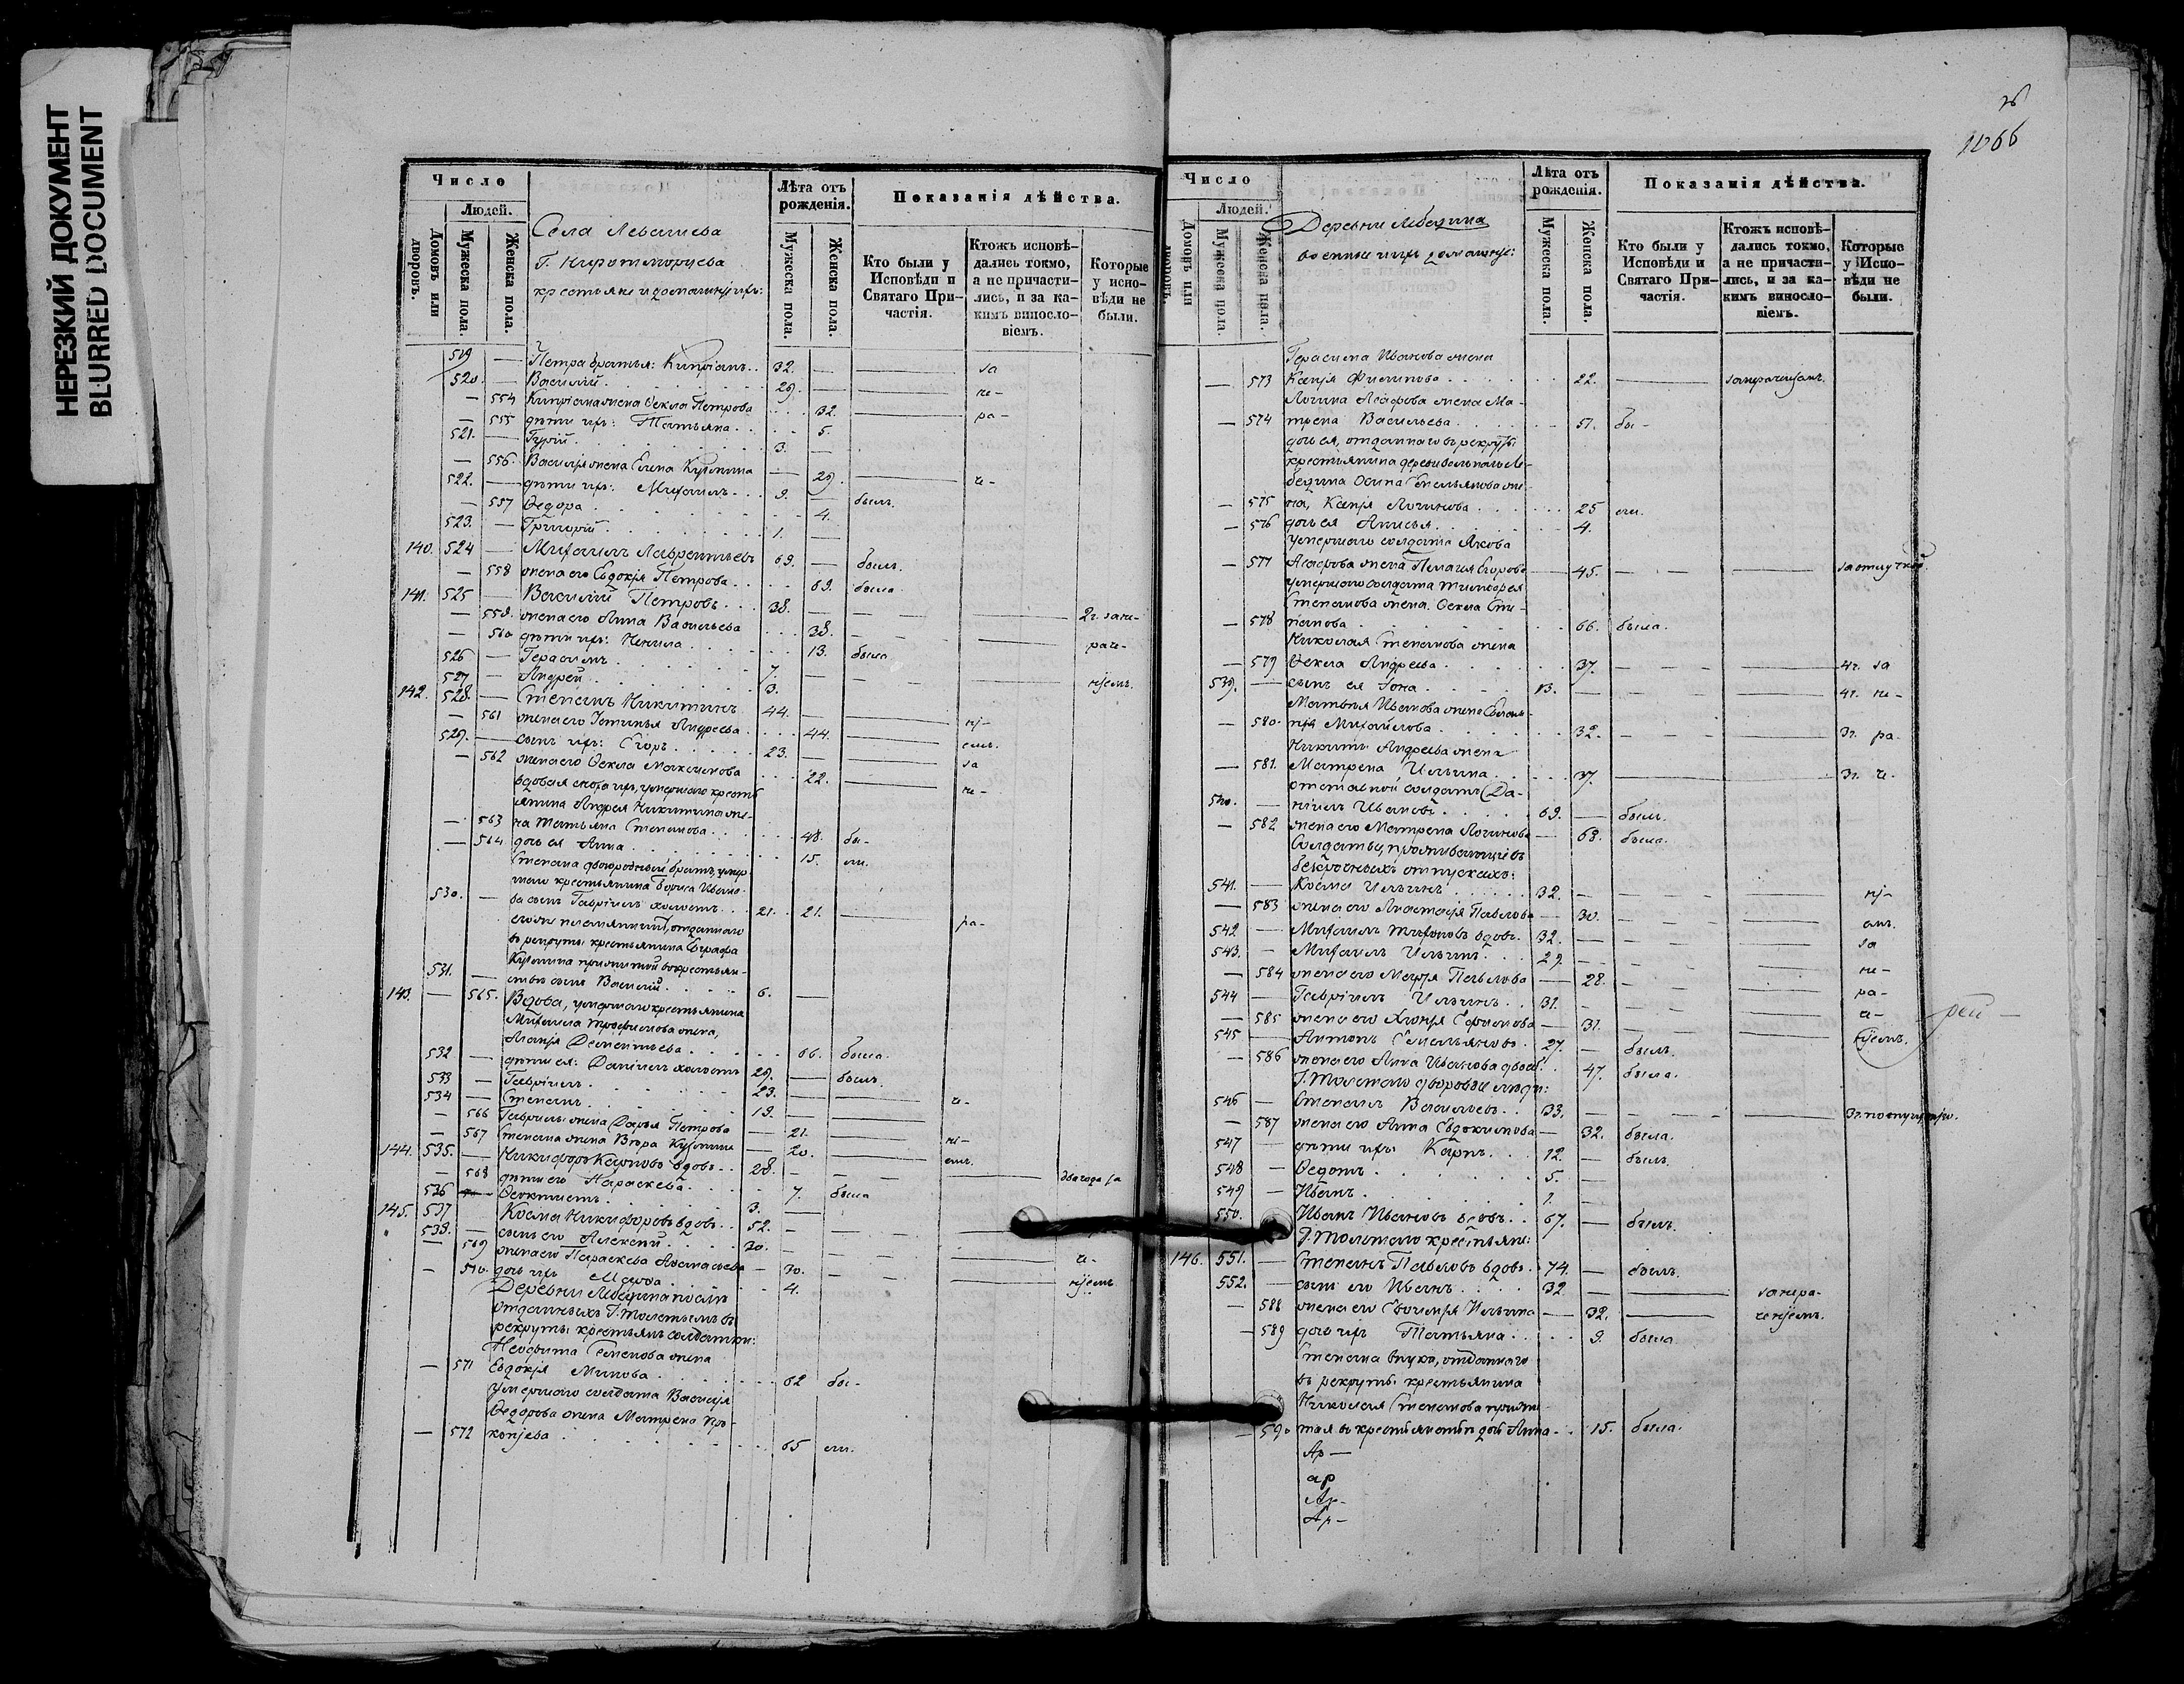 НЕРЕЗКИЙ ДОКУМЕНТ
BLURRED DOCUMENT
1066
Число
Людей.
Домовъ или дворовъ.
Мужеска пола.
Женска пола.
Лѣта отъ рожденія.
Мужеска пола.
Женска пола.
Показанія дѣйства.
Кто были у Исповѣди и Святаго Причастія.
Ктожъ исповѣдались токмо, а не причастились, и за какимъ винословіемъ.
Которые у исповѣди не были.
Села Левашева
крестьяне и домашніе ихъ:
519 — Петра братья: Кипріанъ 32. — за
520. — Василій 29. — не-
— 554 Кипріана жена Ѳекла Петрова 32. ра-
— 555 дѣти ихъ: Татьяна 5.
521. — Гурій 3. —
— 556. Василія жена Елена Кузмина — 29. че-
522. — дѣти ихъ: Михаилъ 9. — былъ.
— 557 Ѳедора 4.
523. — Григорій 1. —
140. 524 — Михаилъ Лаврентьевъ 69. — былъ.
— 558 жена его Евдокія Петрова 69. была
141. 525 — Василій Петровъ 38. — 2г. за не-
— 559. жена его Анна Васильева 38. раче-
— 560 дѣти ихъ: Ненила 13. была
526 — Герасимъ 7. — ніемъ.
527 — Андрей 3.
142. 528. — Степанъ Никитинъ 44. — ні-
— 561 жена его Устинья Андреева 44. емъ.
529. — сынъ ихъ: Егоръ 23. — за
— 562 жена его Ѳекла Максимова 22. не-
вдовая сноха ихъ, умершаго кресть
янина Андрея Никитина же-
— 563 на Татьяна Степанова 48. бы-
— 564 дочь ея Анна 15. ли.
Степана двоюродный братъ, умер
шаго крестьянина Бориса Ивано-
530. — ва сынъ Гавріилъ холостъ 21. 21. ра-
его же племянникъ, отданнаго
въ рекруты крестьянина Евграфа
Кузмина прижитой въ крестьян-
531. — ствѣ сынъ Василій 6. —
143. — 565. Вдова, умершаго крестьянина
Михаила Трофимова жена,
Агафія Дементьева 66. была.
532 — дѣти ея: Даніилъ холостъ 29. — былъ.
533 — Гавріилъ 23. — че-
534 — Степанъ 19. —
— 566 Гавріила жена Дарья Петрова — 21. ні-
— 567 Степана жена Вѣра Кузмина — 20. емъ.
144. 535. — Никифоръ Карповъ вдовъ 28. — два года за
— 568 дѣти его Параскева 7. была
536 Ѳеоктистъ 3. —
145. 537 Косма Никифоровъ вдовъ 52. —
538. — сынъ его Алексѣй 30. —
— 569 жена его Параскева Аѳанасьева — 30. че-
— 570. дочь ихъ Марѳа 4. ніемъ
Деревни Лебедина послѣ
отданныхъ Г. Толстымъ въ
рекруты крестьянъ солдатки:
Неофита Семенова жена
— 571 Евдокія Минова 62 бы-
умершаго солдата Василія
Ѳедорова жена Матрена Про-
— 572 копіева 65 ли.
Число
Людей.
Домовъ или дворовъ.
Мужеска пола.
Женска пола.
Лѣта отъ рожденія.
Мужеска пола.
Женска пола.
Показанія дѣйства.
Кто были у Исповѣди и Святаго Причастія.
Ктожъ исповѣдались токмо, а не причастились, и за какимъ винословіемъ.
Которые у Исповѣди не были.
Деревни Лебедина
военные и ихъ домашніе:
Герасима Иванова жена
— 573 Ксенія Филипова 22.
Логина Агафова жена Ма-
— 574 трена Васильева 51. бы-
дочь ея, отданнаго въ рекруты
крестьянина
бедина Осипа Емельянова же-
— 575 на, Ксенія Логинова 25 ли.
— 576 дочь ея Анисья 4.
умершаго солдата Якова
— 577 Агафова жена Пелагія Егорова — 45. — за отлучкой
умершаго солдата Тимофея
Степанова жена Ѳекла Сте-
— 578 панова 66. была.
Николая Степанова жена
— 579 Ѳекла Андреева 37. 4г. за
539. — сынъ ея Іона 13. — 4г. не-
Матвея Иванова жена
— 580. Михайлова 32. 3г. ра
Никиты Андреева жена
— 581. Матрена Ильина 37. 3г. че-
отставной солдатъ Да-
540. — ніилъ Ивановъ 69. — былъ.
— 582 жена его Матрена Логинова — 68. была.
Солдаты, проживающіе въ
безсрочныхъ отпускахъ:
541. — Косма Ильинъ 32. — ні-
— 583 жена его Анастасія Павлова — 30. емъ.
542 — Михаилъ Тихоновъ вдовъ 32. — за
543. — Михаилъ Ильинъ 29. — не-
— 584 жена его Марія Павлова — 28. ра-
544 — Гавріилъ Ильинъ 31. — че-
— 585 жена его Ефимова — 31. ніемъ.
545 — Антонъ Емельяновъ 27. — былъ.
— 586 жена его Анна Иванова 47. была.
Г. Толстаго дворовые люди:
546 — Степанъ Васильевъ 33. —
— 587 жена его Анна Евдокимова — 32. была.
547 — дѣти ихъ: Карпъ 12. — былъ.
548 — Ѳедотъ 5. —
549 — Иванъ 1. —
550. Иванъ Ивановъ вдовъ 67. — былъ.
Г. Толстаго крестьяне:
146. 551. — Степанъ Павловъ вдовъ 74. — былъ.
552. — сынъ его Иванъ 32 — за нера-
— 588 жена его Ильина — 32. ченіемъ.
— 589 дочь ихъ Татьяна 9. была
Степана внука, отданнаго
въ рекруты крестьянина
Николая Степанова прижи-
— 590 тая въ крестьянствѣ дочь Анна 15. была.